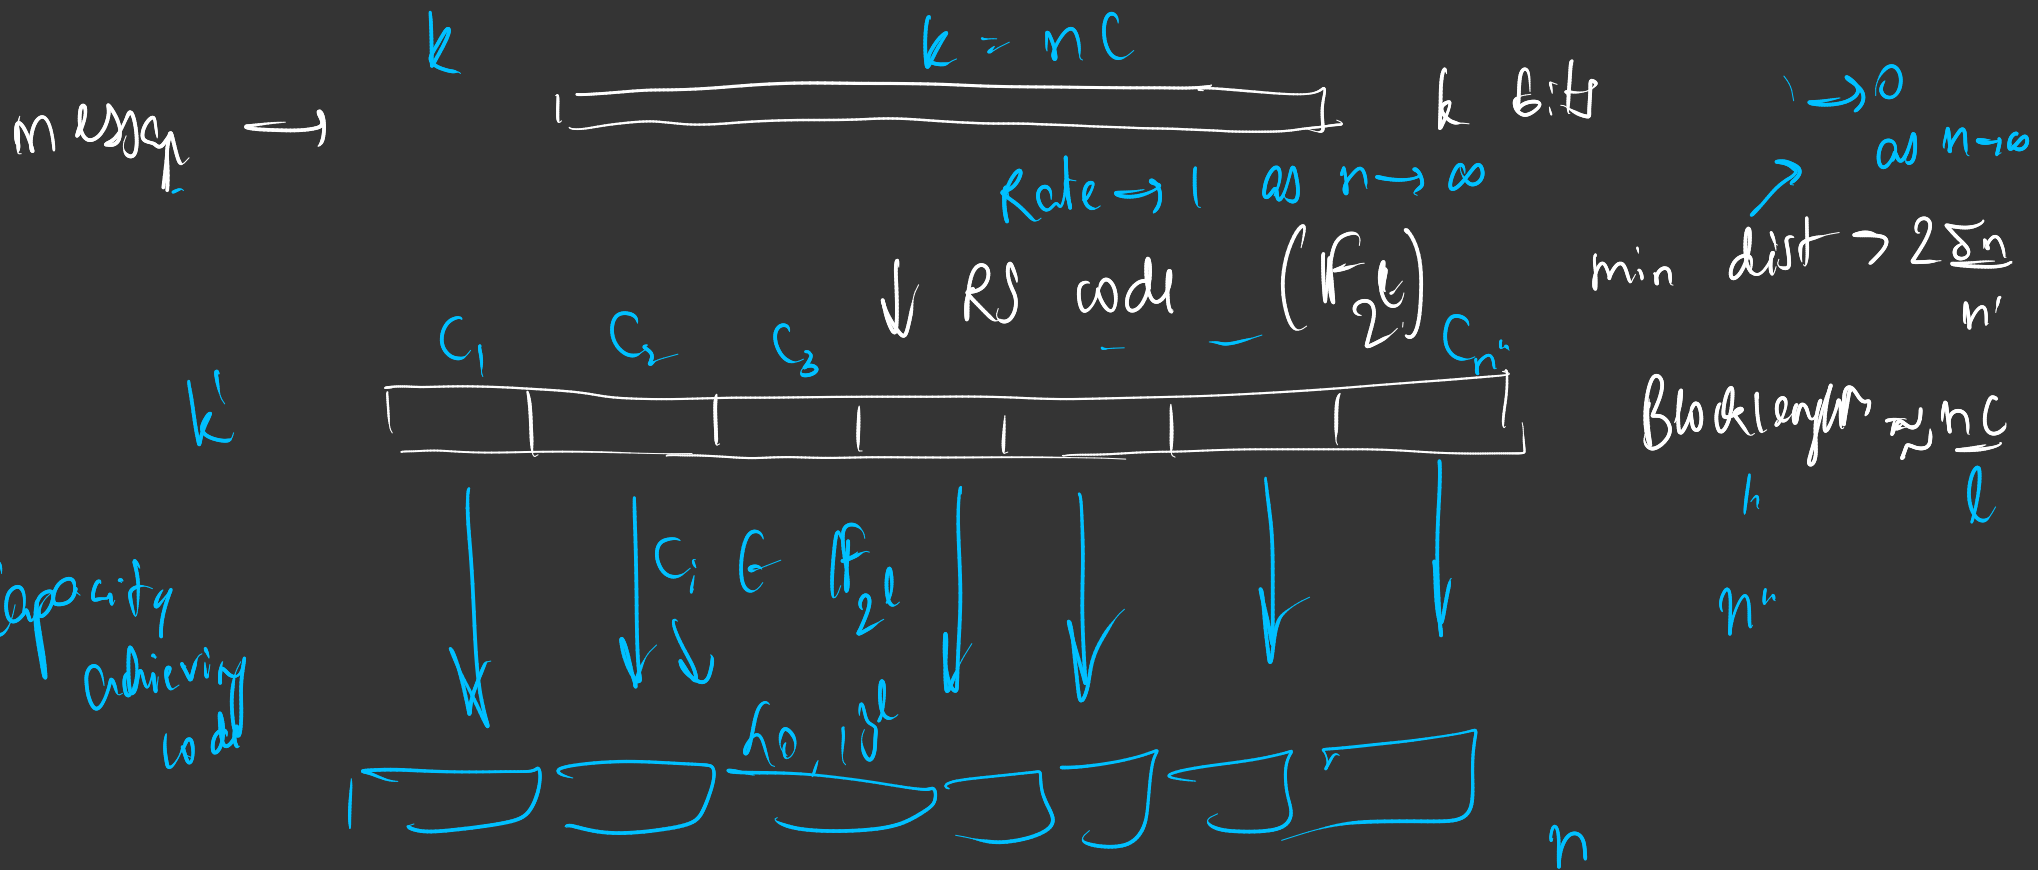 k
k = nC
message →
k bits
→ 0
as n→∞
Rate → 1 as n → ∞
↓ RS code (F_2^ℓ)
min dist > 2δn/n'
C_1 C_2 C_3 - - C_n''
k'
Blocklength ≈ nC/ℓ
C_i ∈ F_2^ℓ
n''
Capacity
achieving
code
{0,1}^ℓ
n